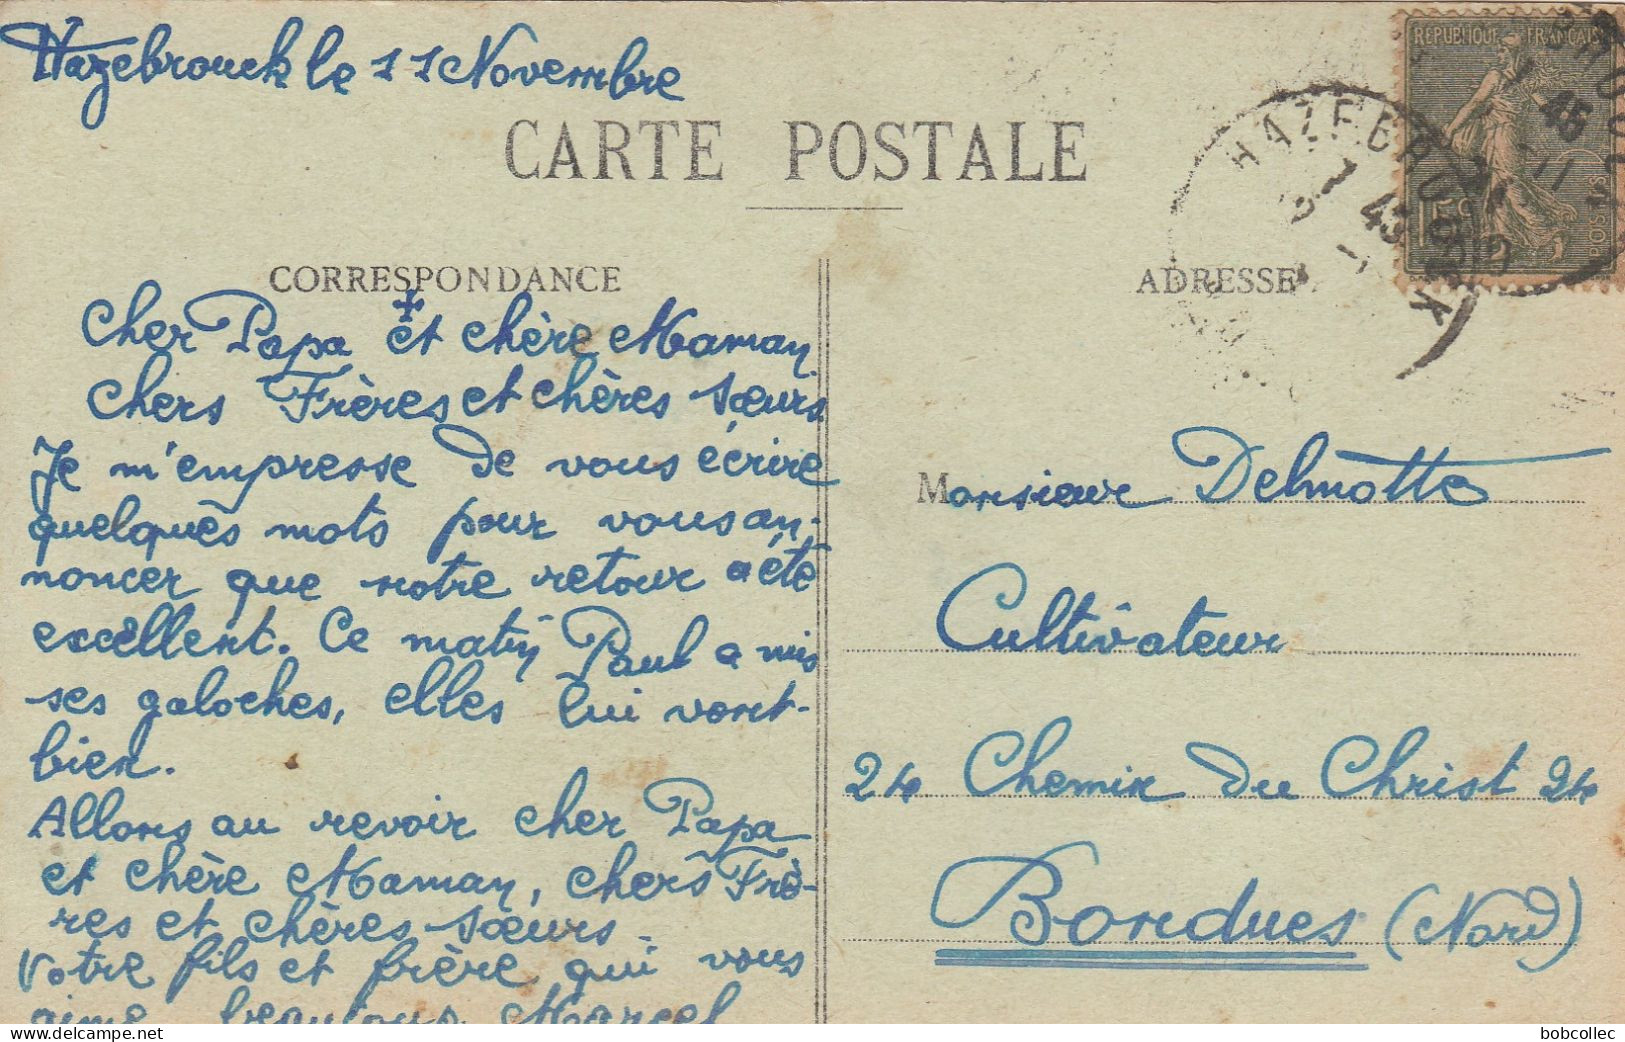 Hazebrouck le 11 Novembre
CARTE POSTALE
CORRESPONDANCE
Cher Papa et chère Maman
chers Frères et chères sœurs
Je m'empresse de vous écrire
quelques mots pour vous an-
noncer que notre retour a été
excellent. Ce matin Paul a mis
ses galoches, elles lui vont
bien.
Allons au revoir cher Papa
et chère Maman, chers Frè-
res et chères sœurs.
Votre fils et frère qui vous
aime beaucoup Marcel
ADRESSE
REPUBLIQUE FRANÇAISE
15c
POSTES
HAZEBROUCK
Monsieur Delmotte
Cultivateur
24 Chemin du Christ 24
Bondues (Nord)
bobcollec